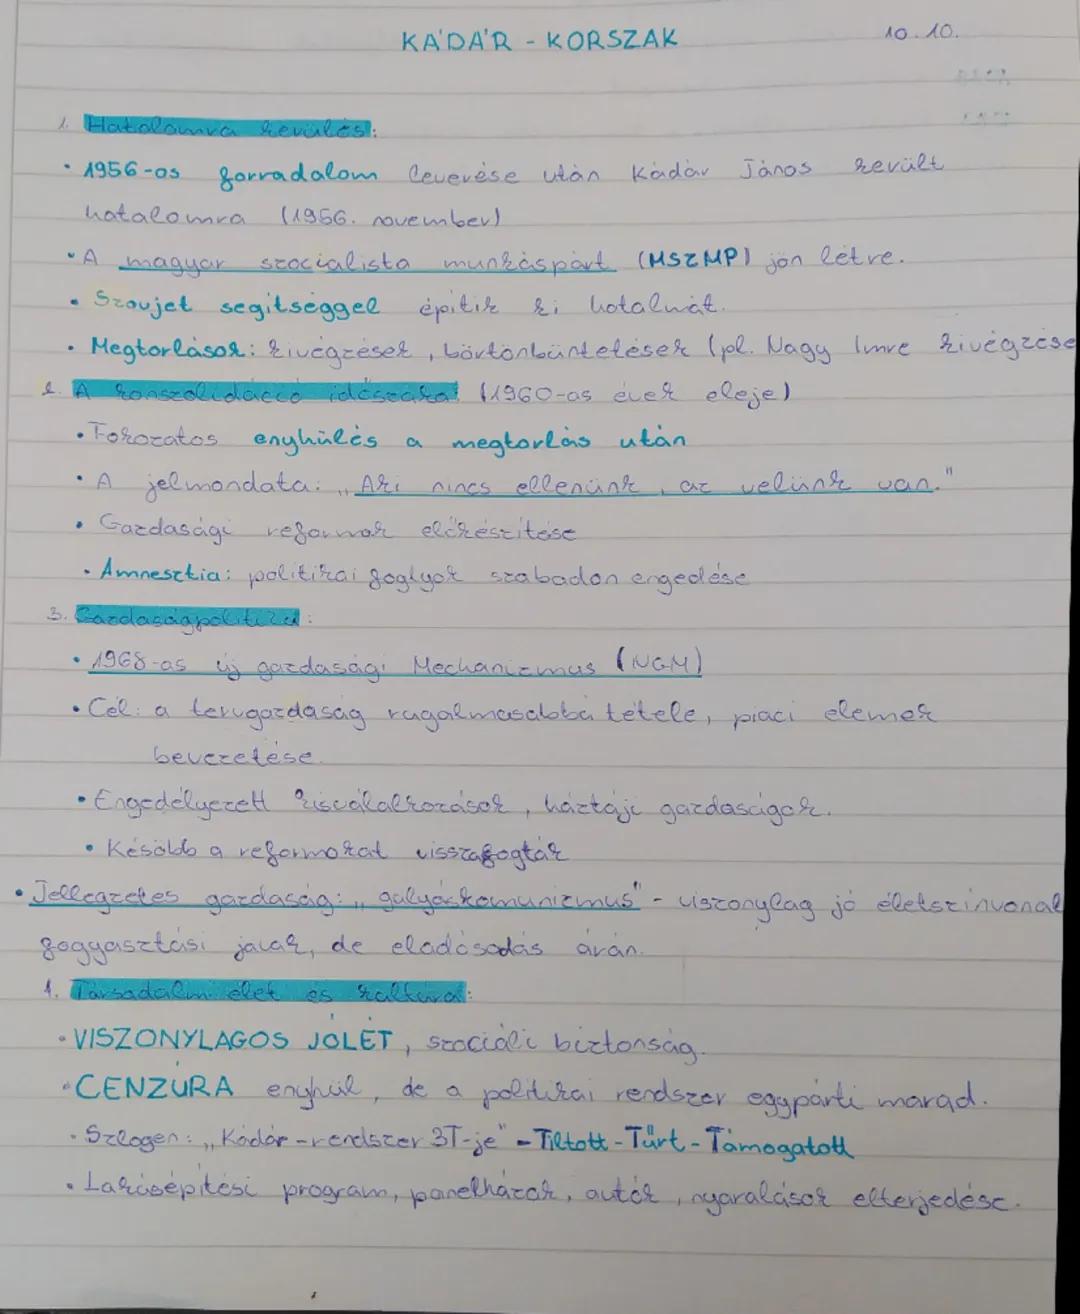 KÁDÁR - KORSZAK
10.10.
1. Hatalomra kerülés:
• 1956-os forradalom leverése után Kádár János került
hatalomra (1956. november)
• A magyar szocialista munkáspárt (MSZMP) jön létre.
• Szovjet segítséggel építik ki hatalmát.
• Megtorlások: kivégzések, börtönbüntetések (pl. Nagy Imre kivégzése
2. A konszolidáció időszaka: (1960-as évek eleje)
• Fokozatos enyhülés a megtorlás után
• A jelmondata: „Aki nincs ellenünk, az velünk van."
• Gazdasági reformok előkészítése
• Amnesztia: politikai foglyok szabadon engedése
3. Gazdaságpolitika:
• 1968-as új gazdasági Mechanizmus (NGM)
• Cél: a tervgazdaság rugalmasabbá tétele, piaci elemek
bevezetése.
• Engedélyezett kisválalkozások, háztáji gazdaságok.
• Később a reformokat visszafogták
• Jellegzetes gazdaság: „gulyáskomunizmus" - viszonylag jó életszínvonal
foggyasztási javak, de eladósodás árán.
4. Társadalmi élet és kultúra:
• VISZONYLAGOS JÓLÉT, szociáli biztonság.
• CENZÚRA enyhül, de a politikai rendszer egypárti marad.
• Szlogen: „Kádár-rendszer 3T-je" - Tiltott - Tűrt - Támogatott
• Lakásépítési program, panelházak, autók, nyaralások elterjedése.